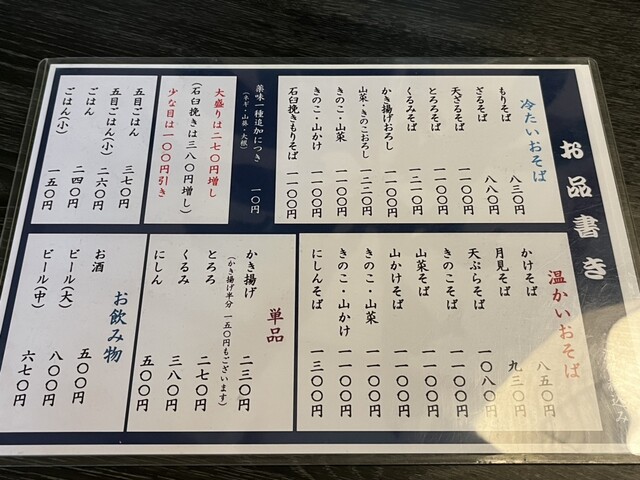 お品書き
冷たいおそば
もりそば 八三〇円
ざるそば 八八〇円
天ざるそば 一一〇〇円
とろろそば 一一〇〇円
くるみそば 一二一〇円
かき揚げおろし 一一〇〇円
山菜・きのこおろし 一二二〇円
きのこ・山菜 一一〇〇円
きのこ・山かけ 一一〇〇円
石臼挽きもりそば 一一〇〇円
薬味一種追加につき 一〇円
(ネギ・山葵・大根)
大盛りは二七〇円増し
(石臼挽きは三八〇円増し)
少な目は一〇〇円引き
五目ごはん 三七〇円
五目ごはん(小) 二六〇円
ごはん 二四〇円
ごはん(小) 一五〇円
温かいおそば
かけそば 八五〇円
月見そば 九三〇円
天ぷらそば 一〇八〇円
きのこそば 一一〇〇円
山菜そば 一一〇〇円
山かけそば 一一〇〇円
きのこ・山菜 一一〇〇円
きのこ・山かけ 一一〇〇円
にしんそば 一三〇〇円
単品
かき揚げ 二三〇円
(かき揚げ半分 一五〇円もございます)
とろろ 二七〇円
くるみ 三八〇円
にしん 五〇〇円
お飲み物
お酒 五〇〇円
ビール(大) 八〇〇円
ビール(中) 六七〇円